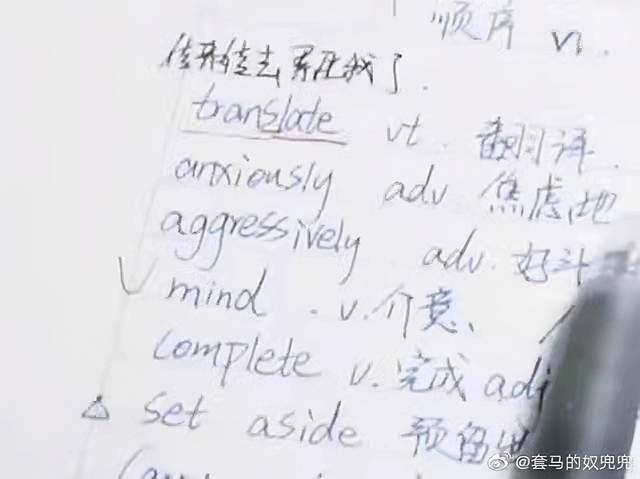 顺序 n.
传来传去累死我了.
translate vt. 翻译.
anxiously adv. 焦虑地
aggressively adv. 好斗
mind . v. 介意、
complete v. 完成 adj
△ set aside 预留出
@套马的奴兜兜